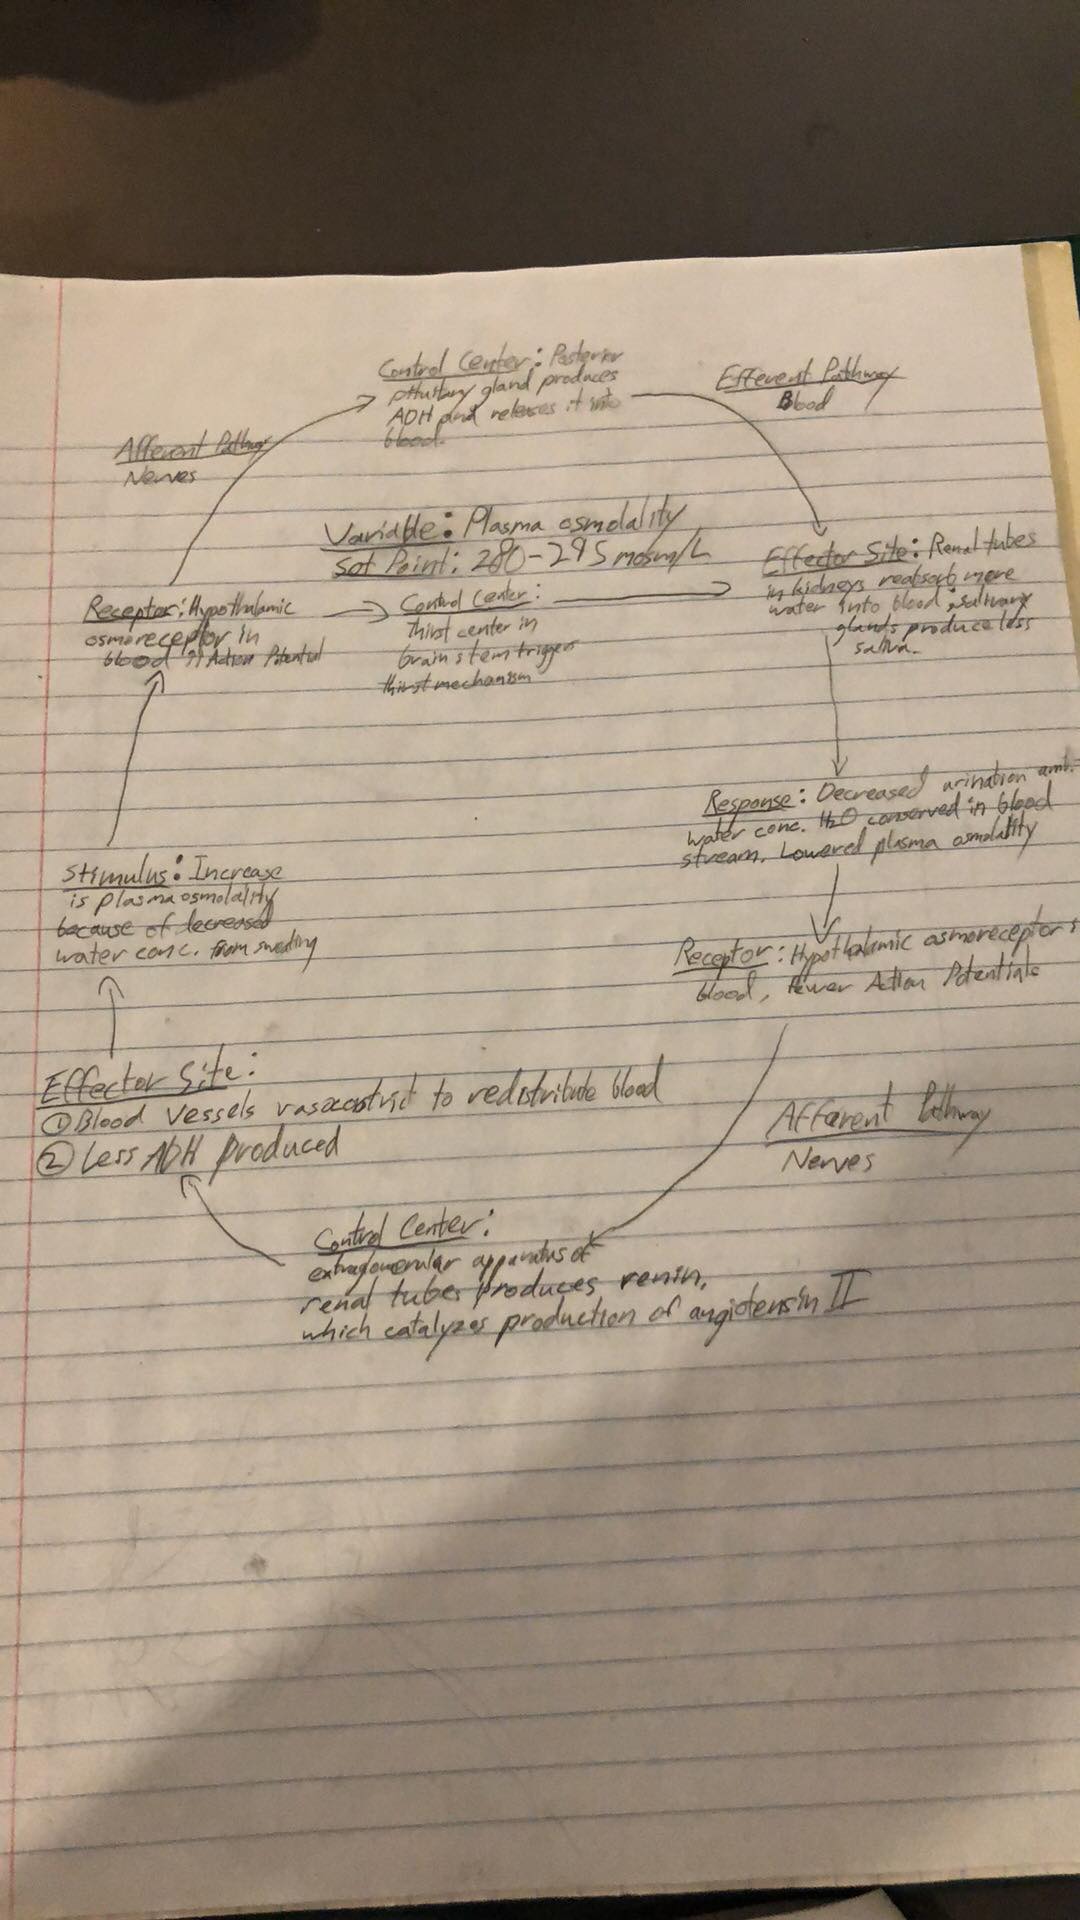 Control Center: Posterior
pituitary gland produces
ADH and releases it into
blood.
Efferent Pathway
Blood
Afferent Pathway
Nerves
Variable: Plasma osmolality
Set Point: 280-295 mosm/L
Receptor: Hypothalamic
osmoreceptor in
blood ↑ Action Potential
Control Center:
Thirst center in
brain stem triggers
thirst mechanism
Effector Site: Renal tubes
in kidneys reabsorb more
water into blood; salivary
glands produce less
saliva.
Response: Decreased urination amt.
water conc. H₂O conserved in blood
stream. Lowered plasma osmolality
Stimulus: Increase
is plasma osmolality
because of decreased
water conc. from sweating
Receptor: Hypothalamic osmoreceptors
blood, Fewer Action Potentials
Effector Site:
① Blood Vessels vasoconstrict to redistribute blood
② Less ADH produced
Afferent Pathway
Nerves
Control Center:
apparatus of
renal tubes produces renin,
which catalyzes production of angiotensin II